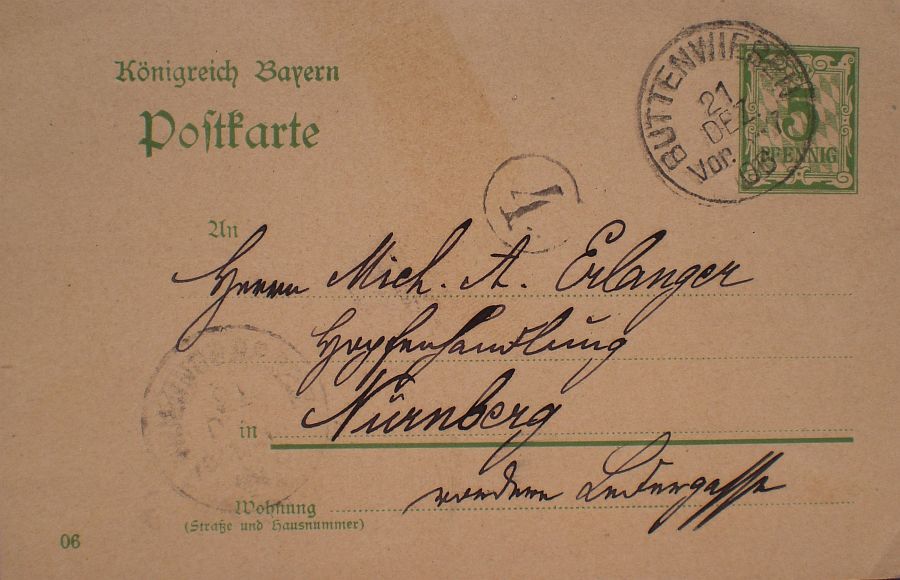 Königreich Bayern
Postkarte
BUTTENWIESEN
21
DEZ.
Vor.
06
5
PFENNIG
An
Herrn Mich. A. Erlanger
Hopfenhandlung
in Nürnberg
vordere Ledergasse
Wohnung
(Straße und Hausnummer)
06